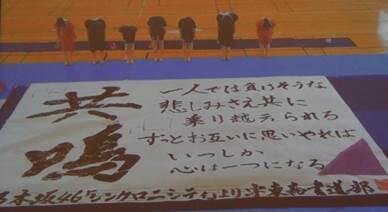 共鳴
一人では負けそうな
悲しみさえ共に
乗り越えられる
ずっとお互いに思いやれば
いつしか
心は一つになる
乃木坂46「シンクロニシティ」より 書道部